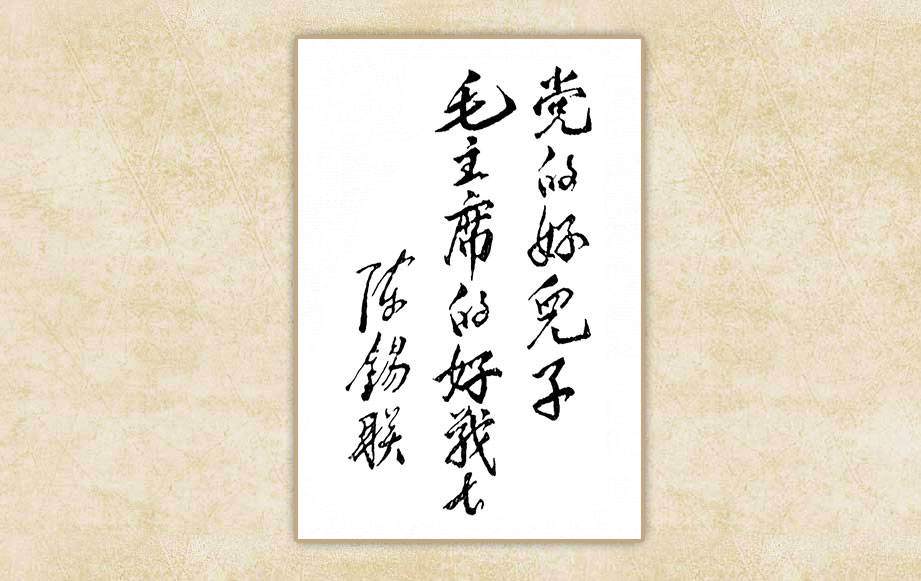 党的好兒子
毛主席的好戰士
陈錫联